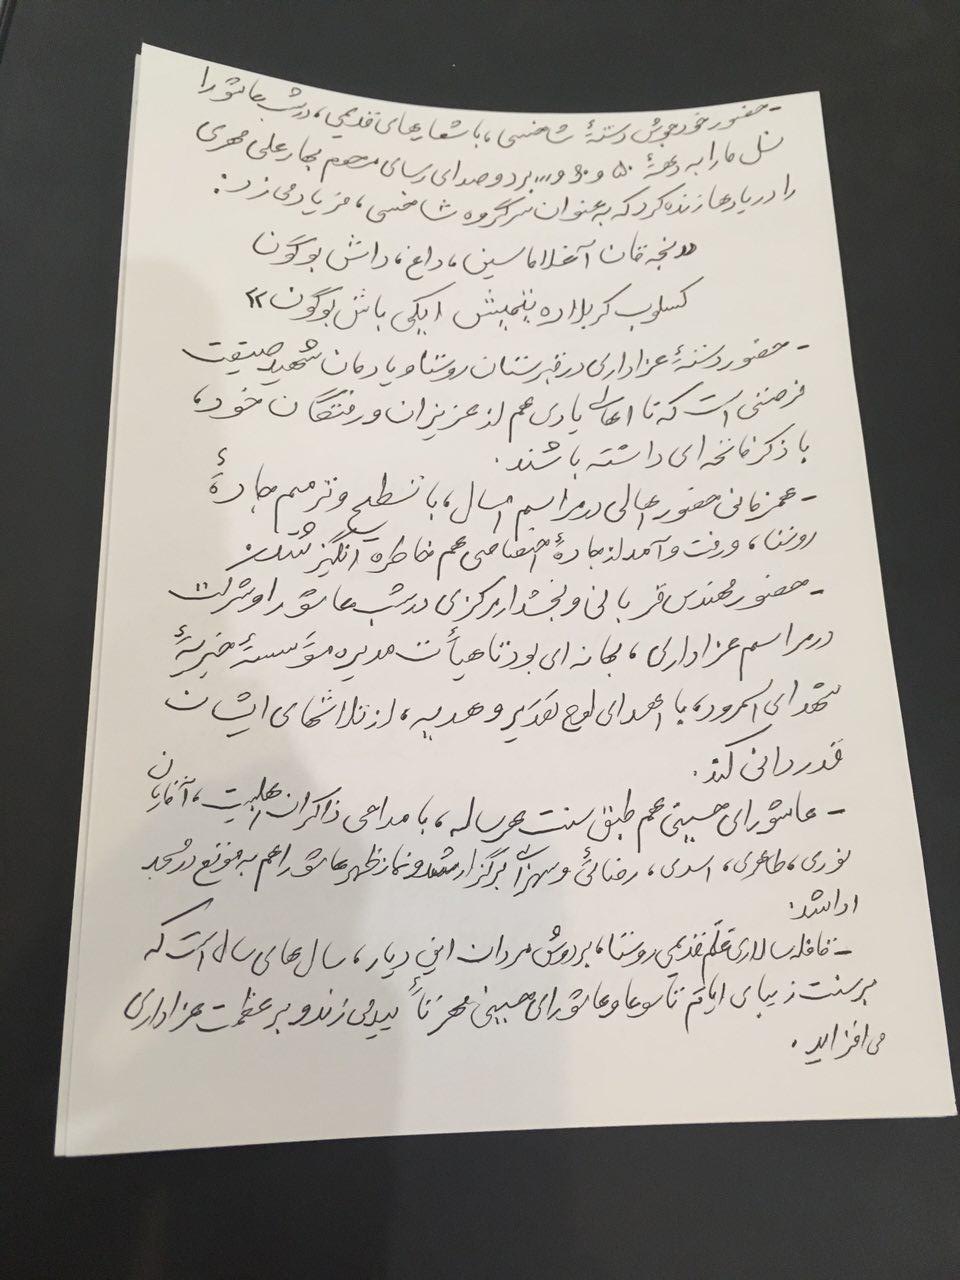 - حضور خودجوش دستهٔ شاخسی، با شعارهای قدیمی، در شب عاشورا
نسل ما را به دههٔ ۵۰ و ۶۰ و... برد و صدای رسای مرحوم بهارعلی مهری
را در یادها زنده کرد که به عنوان سرگروه شاخسی، فریاد می زد:
«نجه قان آغلاماسین، داغ، داش بوگون
کسلوب کربلاده یتمیش ایکی باش بوگون»
- حضور دستهٔ عزاداری در قبرستان روستا و یادمان شهید حقیقت
فرصتی است که تا اهالی یادی هم از عزیزان و رفتگان خود،
با ذکر فاتحه ای داشته باشند.
- همزمانی حضور اهالی در مراسم امسال، با تسطیح و ترمیم جادهٔ
روستا، و رفت و آمد از جادهٔ اختصاصی هم خاطره انگیز شد.
- حضور مهندس قربانی و بخشدار مرکزی در شب عاشورا و شرکت
در مراسم عزاداری، بهانه ای بود تا هیأت مدیره مؤسسهٔ خیریهٔ
شهدای اسمرود، با اهدای لوح تقدیر و هدیه، از تلاشهای ایشان
قدردانی کند.
- عاشورای حسینی هم طبق سنت هر ساله، با مداحی ذاکران اهلبیت، آقایان
نوری، طاهری، اسدی، رضائی و سهرابی برگزار شد و نماز ظهر عاشورا هم به موقع در مسجد
ادا شد.
- قافله سالاری عَلَم قدیمی روستا، بر دوش مردان این دیار، سال های سال است که
بر سنت زیبای ایام تاسوعا و عاشورای حسینی مهر تأیید می زند و بر عظمت عزاداری
می افزاید.